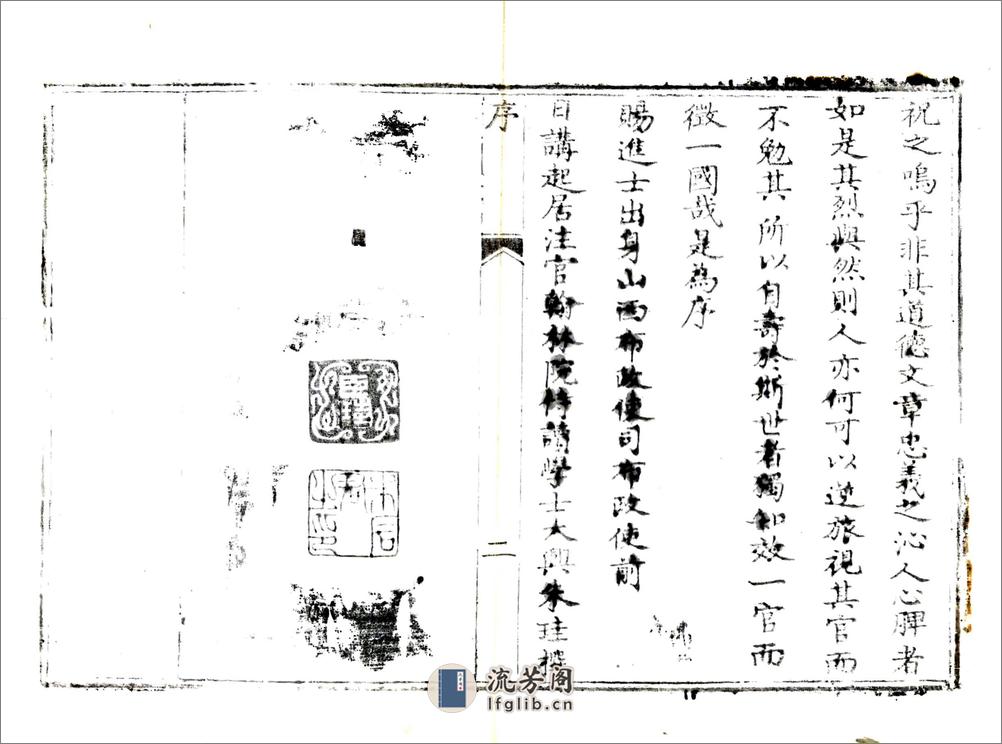 祝之嗚乎非其道德文章忠義之沁人心脾者
如是其烈與然則人亦何可以逆旅視其官而
不勉其所以自壽於斯世者獨知效一官而
徵一國哉是為序
賜進士出身山西布政使司布政使前
日講起居注官翰林院侍講學士大興朱珪撰
序
二
流芳阁
lfglib.cn